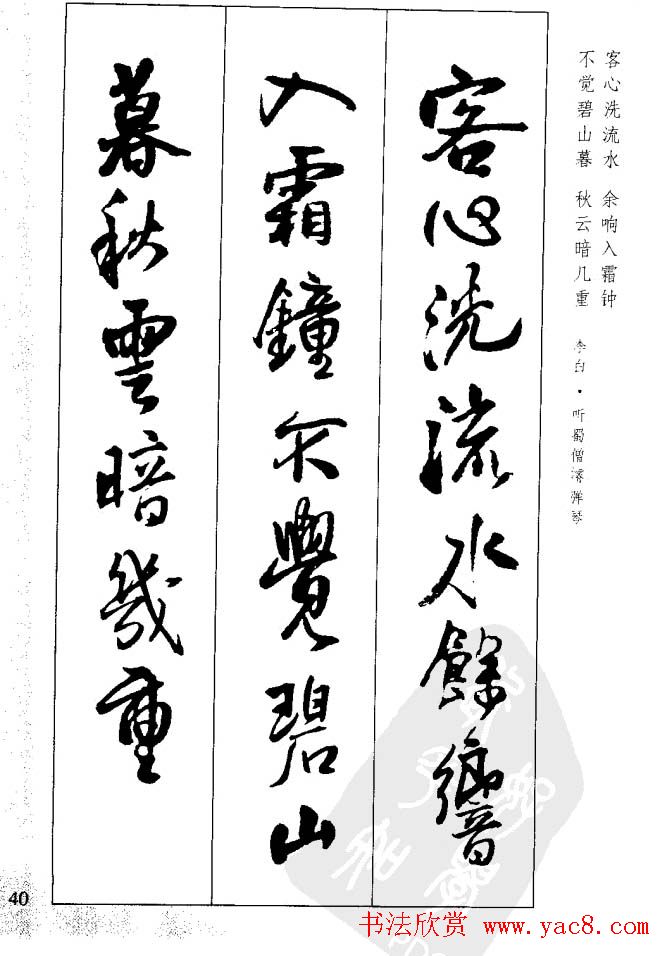 客心洗流水 余响入霜钟
不觉碧山暮 秋云暗几重
李白·听蜀僧濬弹琴
客心洗流水餘響
入霜鐘不覺碧山
暮秋雲暗幾重
40
书法欣赏 www.yac8.com